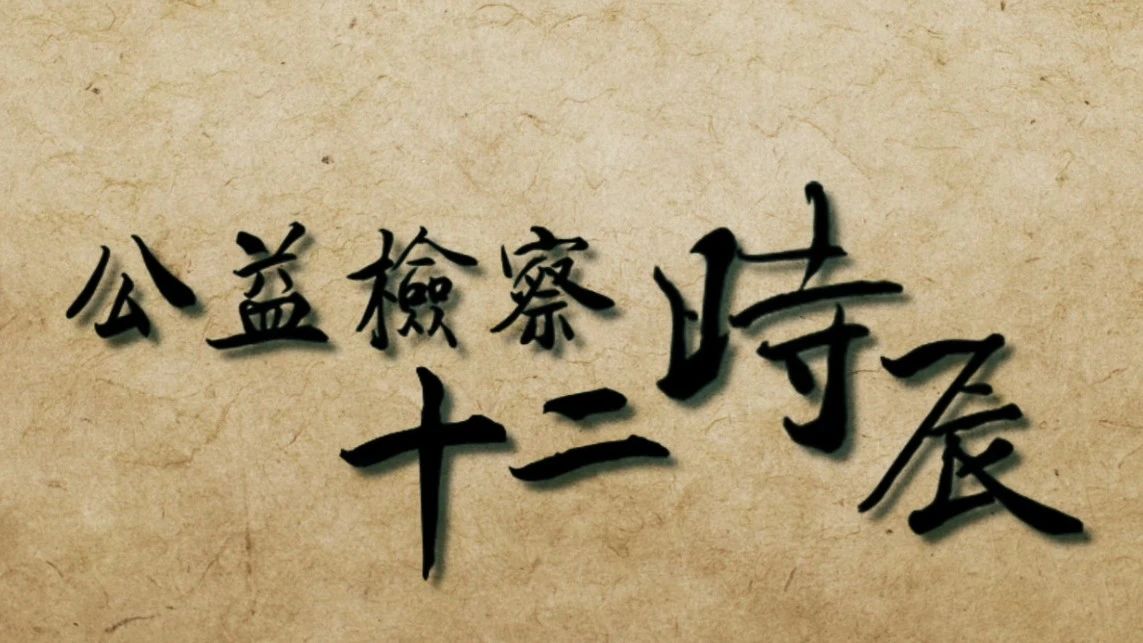 公益檢察
十二時辰